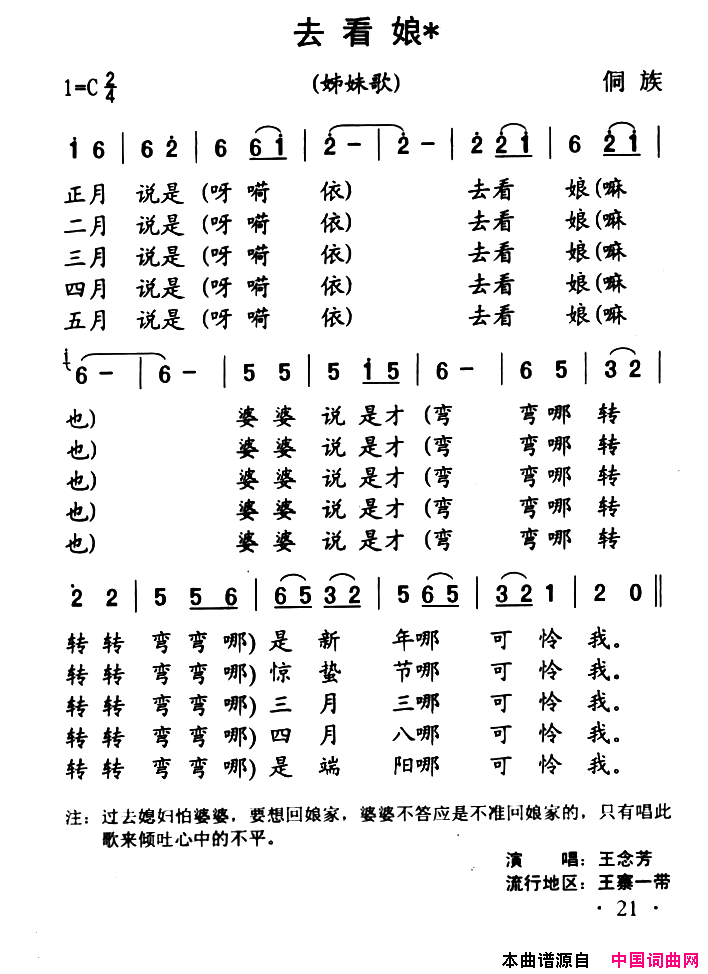 去看娘*
1=C 2/4 (姊妹歌) 侗族
i 6 | 6 2̇ | 6 6 i | 2̇ - | 2̇ - | 2̇ 2̇ i | 6 2̇ i |
正月 说是 (呀 嗬 依) 去看 娘(嘛
二月 说是 (呀 嗬 依) 去看 娘(嘛
三月 说是 (呀 嗬 依) 去看 娘(嘛
四月 说是 (呀 嗬 依) 去看 娘(嘛
五月 说是 (呀 嗬 依) 去看 娘(嘛
6 - | 6 - | 5 5 | 5 i 5 | 6 - | 6 5 | 3 2 |
也) 婆婆 说是才 (弯 弯哪 转
也) 婆婆 说是才 (弯 弯哪 转
也) 婆婆 说是才 (弯 弯哪 转
也) 婆婆 说是才 (弯 弯哪 转
也) 婆婆 说是才 (弯 弯哪 转
2 2 | 5 5 6 | 6 5 3 2 | 5 6 5 | 3 2 1 | 2 0 ‖
转转 弯弯哪) 是新 年哪 可怜我。
转转 弯弯哪) 惊蛰 节哪 可怜我。
转转 弯弯哪) 三月 三哪 可怜我。
转转 弯弯哪) 四月 八哪 可怜我。
转转 弯弯哪) 是端 阳哪 可怜我。
注：过去媳妇怕婆婆，要想回娘家，婆婆不答应是不准回娘家的，只有唱此
歌来倾吐心中的不平。
演 唱：王念芳
流行地区：王寨一带
· 21 ·
本曲谱源自 中国词曲网